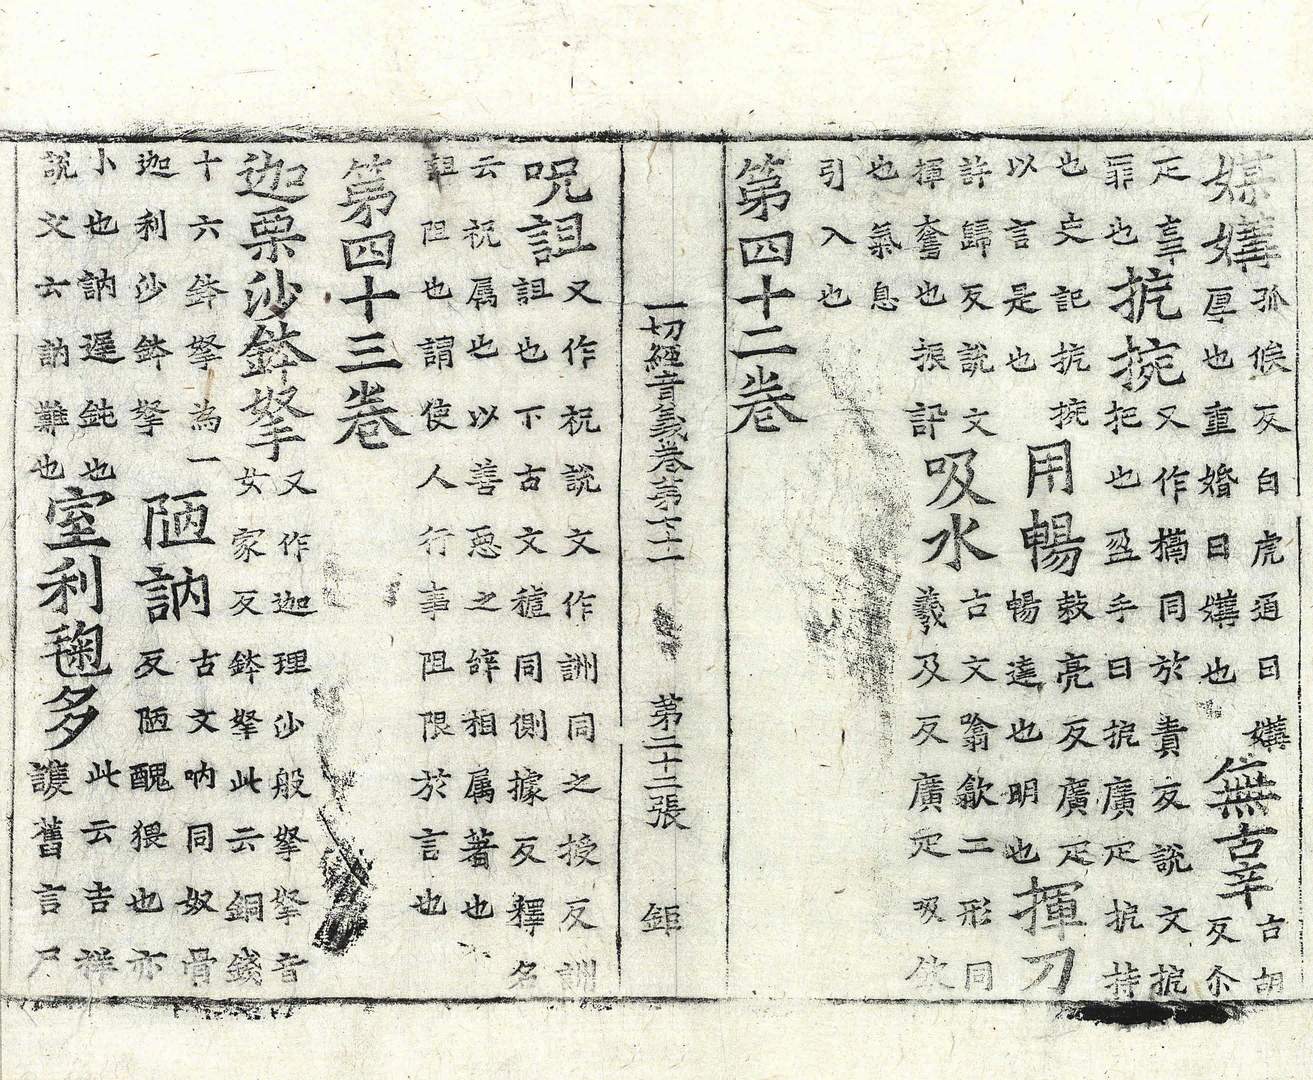 媒媾孤候反白虎通曰媾厚也重婚曰媾也無辜古胡反尒
疋辜罪也扼捥又作搹同於責反說文扼把也盈手曰扼廣疋扼持
也史記扼捥以言是也用暢敕亮反廣疋暢達也明也揮刀
許歸反說文揮奮也振訏吸水古文噏歙二形同羲及反廣疋吸飲
也氣息引入也
第四十二卷
一切經音義卷第二十一 第二十二張 鉅
呪詛又作祝說文作詶同之授反詶詛也下古文𥛜同側據反釋名
云祝属也以善惡之辞相属著也詛阻也謂使人行事阻限於言也
第四十三卷
迦栗沙鉢拏又作迦理沙般拏拏音女家反鉢拏此云銅錢
十六鉢拏為一迦利沙鉢拏陋訥古文呐同奴骨反陋醜猥也亦
小也訥遲鈍也說文云訥難也室利毱多此云吉祥護舊言尸